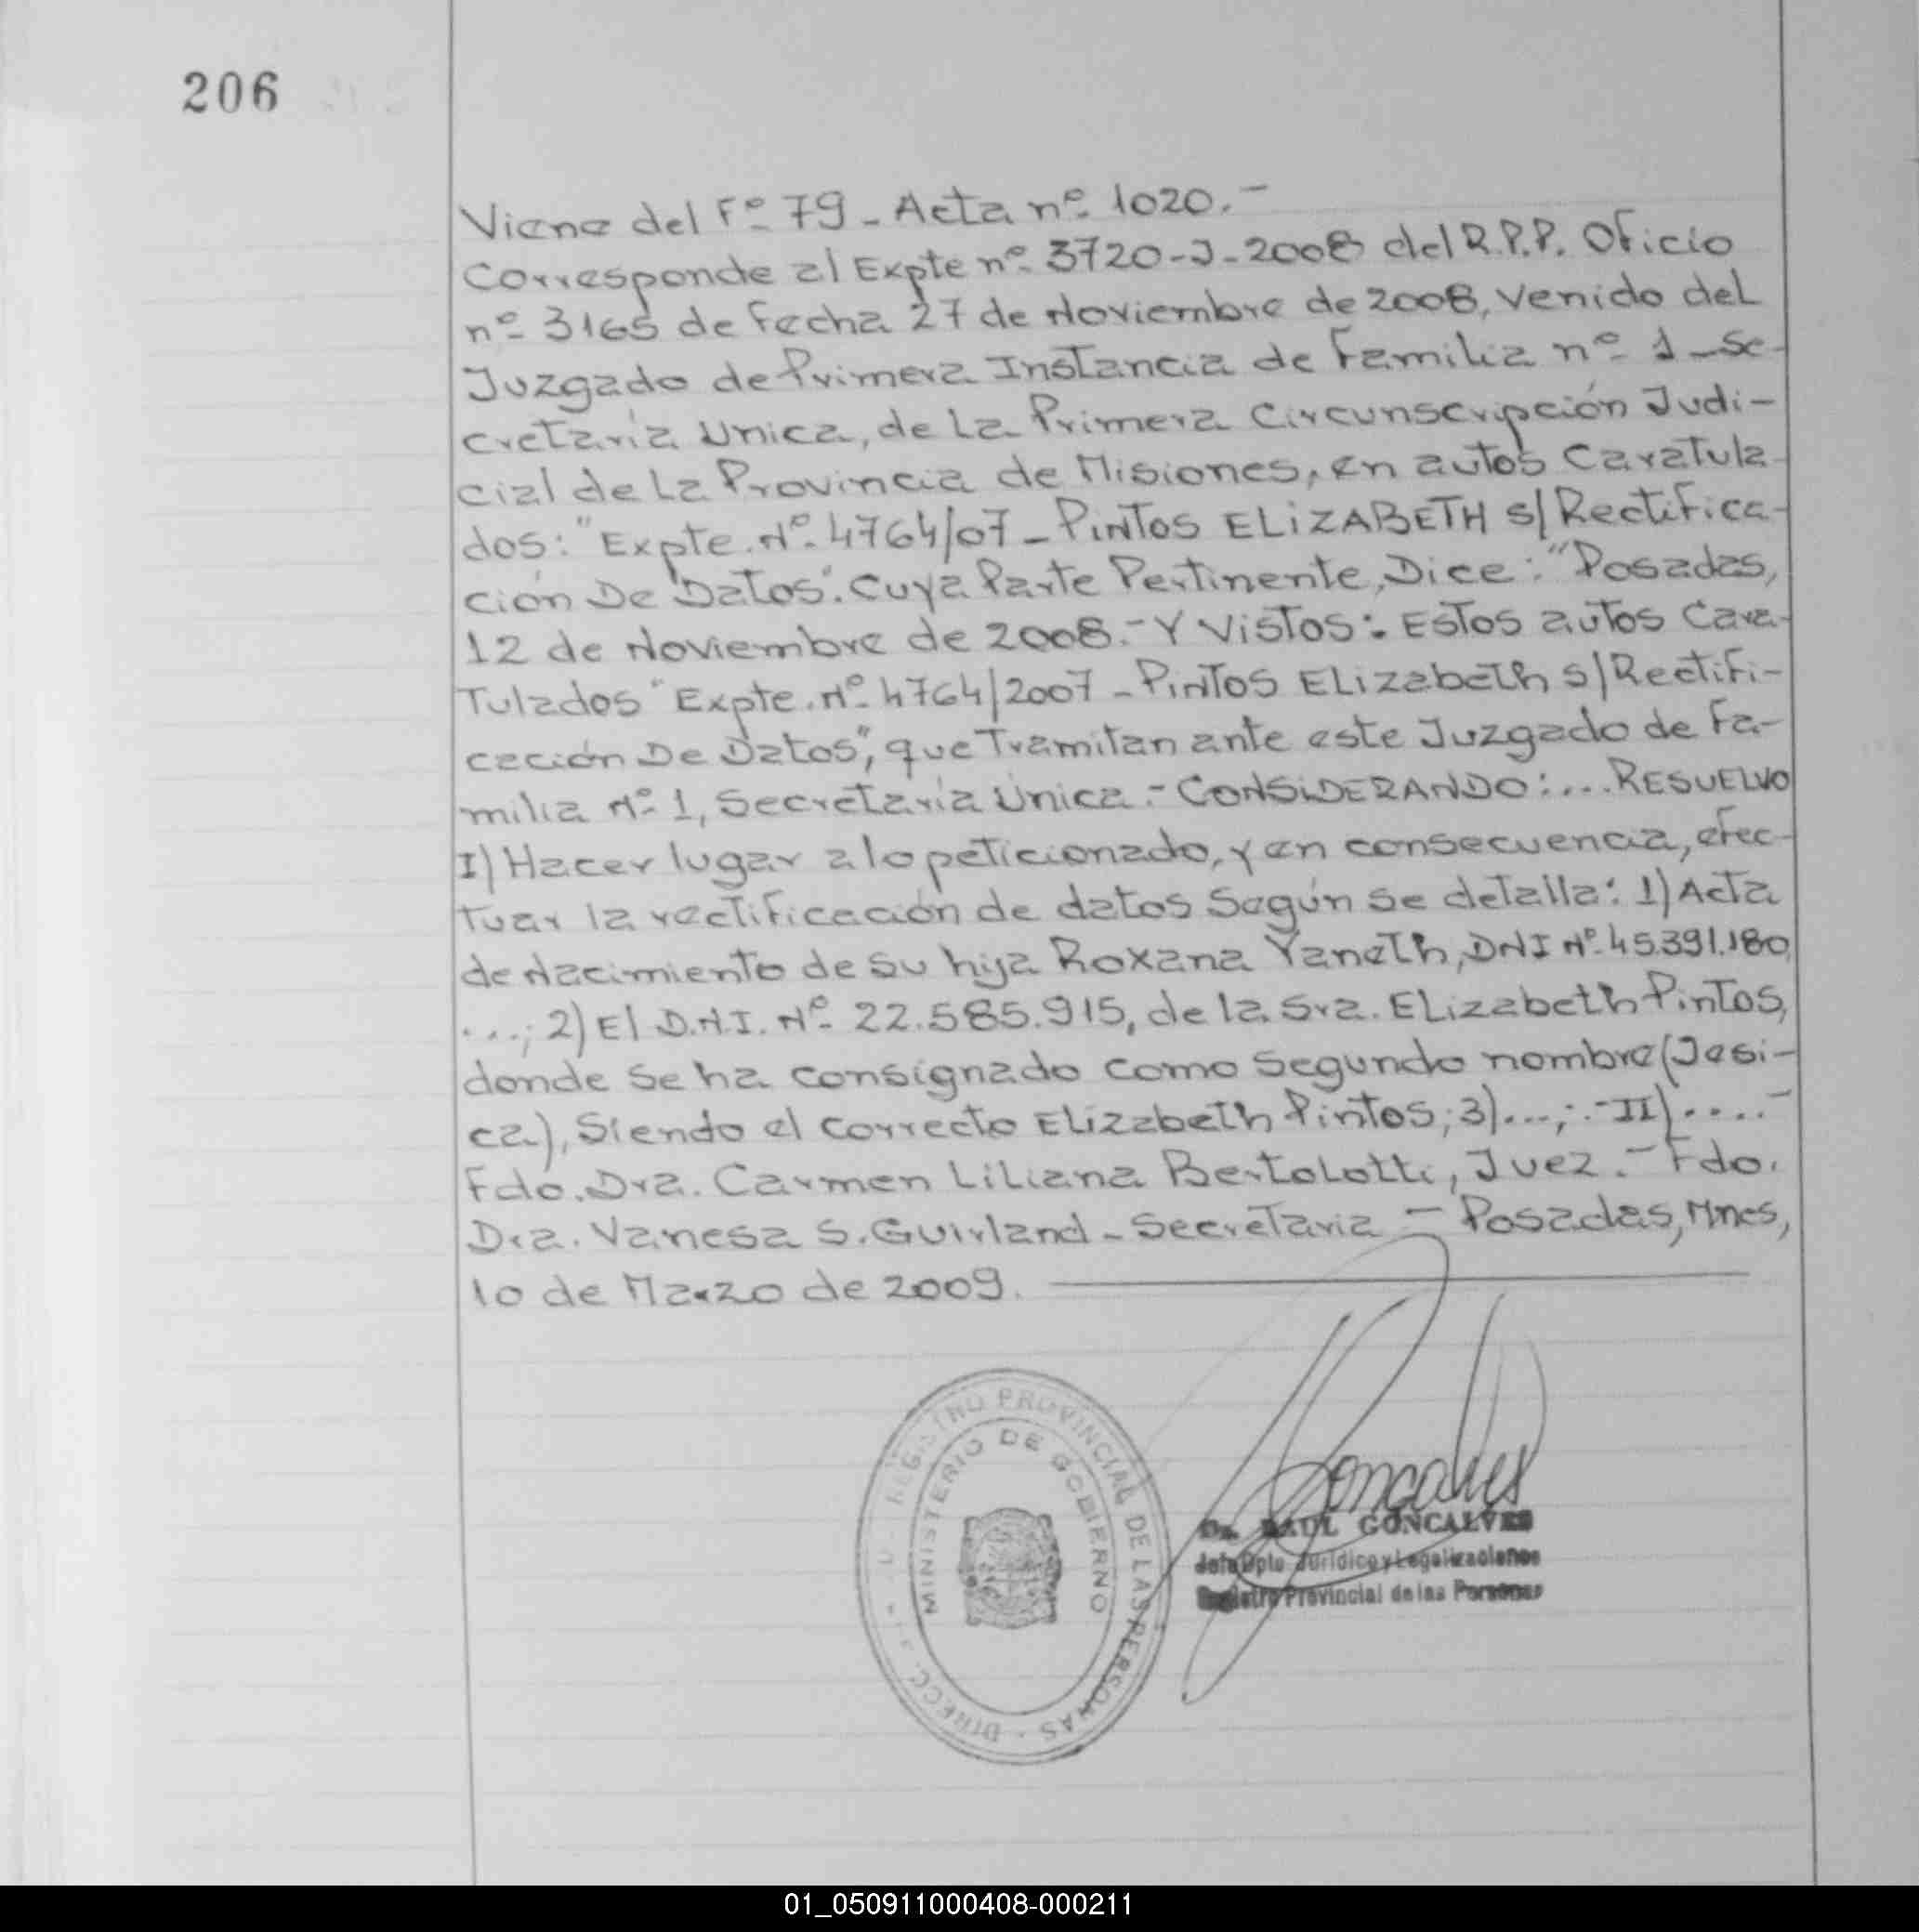 206
Viene del Fº 79 - Acta nº 1020.-
Corresponde al Expte nº 3720-J-2008 del R.P.P. Oficio
nº 3165 de Fecha 27 de Noviembre de 2008, Venido del
Juzgado de Primera Instancia de Familia nº 1 - Se-
cretaría Unica, de La Primera Circunscripción Judi-
cial de La Provincia de Misiones, en autos Caratula-
dos: "Expte. Nº 4764/07 - PINTOS ELIZABETH s/ Rectifica-
ción De Datos". Cuya Parte Pertinente, Dice: "Posadas,
12 de Noviembre de 2008.- Y Vistos: Estos autos Cara-
Tulados "Expte. Nº 4764/2007 - PINTOS ELizabeth s/ Rectifi-
cación De Datos", que Tramitan ante este Juzgado de Fa-
milia Nº 1, Secretaría Unica.- CONSIDERANDO:... RESUELVO
I) Hacer lugar a lo peticionado, y en consecuencia, efec-
tuar la rectificación de datos Según se detalla: 1) Acta
de Nacimiento de su hija Roxana Yaneth, DNI Nº 45.391.180,
...; 2) El D.N.I. Nº 22.585.915, de la Sra. ELizabeth Pintos,
donde se ha consignado como segundo nombre (Jesi-
ca), Siendo el correcto ELizabeth Pintos; 3)...;.- II)....-
Fdo. Dra. Carmen Liliana Bertolotti, Juez.- Fdo.
Dra. Vanesa S. Guirland - Secretaria - Posadas, Mnes,
10 de Marzo de 2009.
REGISTRO PROVINCIAL DE LAS PERSONAS - DIRECC.
MINISTERIO DE GOBIERNO
Goncalves
Dr. RAUL GONCALVES
Jefe Dpto Jurídico y Legalizaciones
Registro Provincial de las Personas
01_050911000408-000211